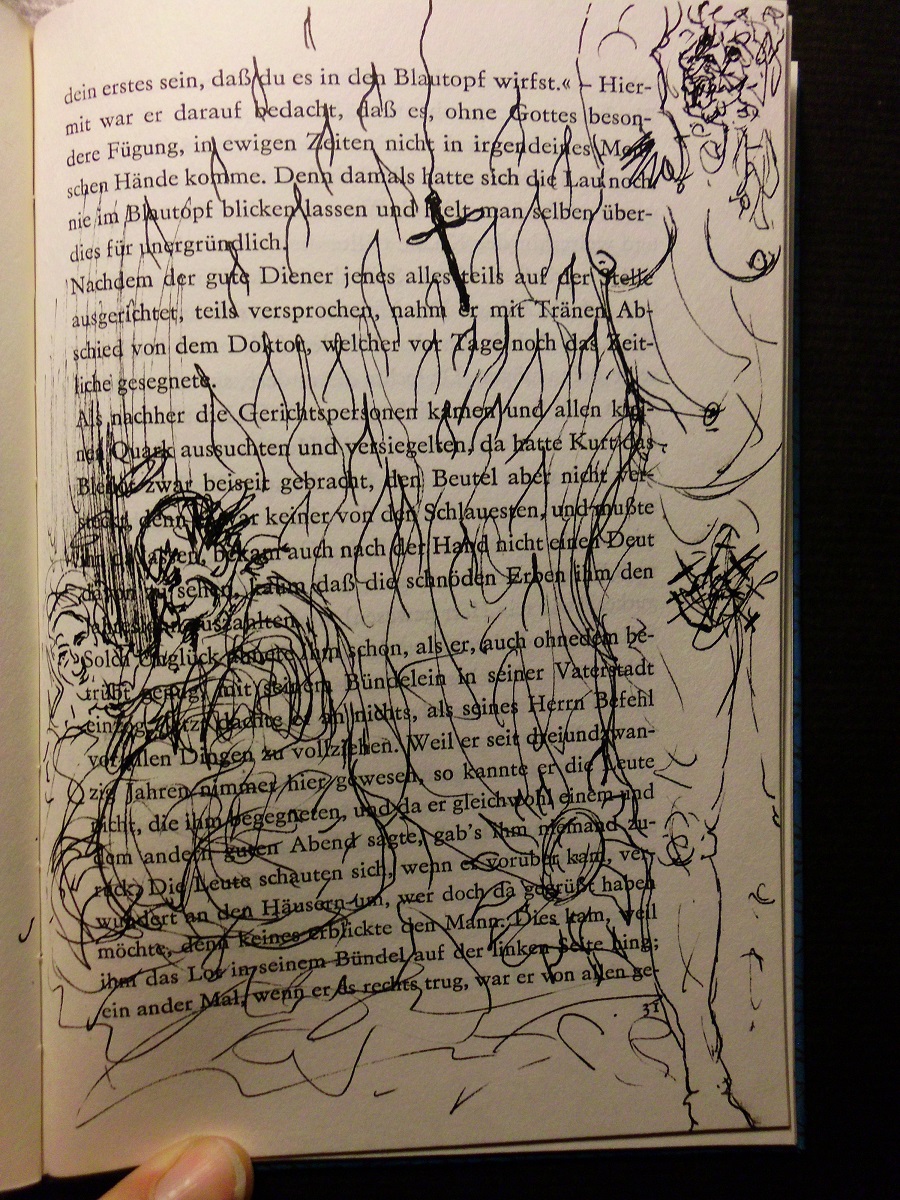 dein erstes sein, daß du es in den Blautopf wirfst.« – Hier-
mit war er darauf bedacht, daß es, ohne Gottes beson-
dere Fügung, in ewigen Zeiten nicht in irgendeines Men-
schen Hände komme. Denn damals hatte sich die Lau noch
nie im Blautopf blicken lassen und hielt man selben über-
dies für unergründlich.
Nachdem der gute Diener jenes alles teils auf der Stelle
ausgerichtet, teils versprochen, nahm er mit Tränen Ab-
schied von dem Doktor, welcher vor Tage noch das Zeit-
liche gesegnete.
Als nachher die Gerichtspersonen kamen und allen klei-
nen Quark aussuchten und versiegelten, da hatte Kurt das
Bleilot zwar beiseit gebracht, den Beutel aber nicht ver-
steckt, denn er war keiner von den Schlauesten, und mußte
ihn da lassen, bekam auch nach der Hand nicht einen Deut
davon zu sehen, kaum daß die schnöden Erben ihm den
Jahreslohn auszahlten.
Solch Unglück ahnete ihm schon, als er, auch ohnedem be-
trübt genug, mit seinem Bündelein in seiner Vaterstadt
einzog. Jetzt dachte er an nichts, als seines Herrn Befehl
vor allen Dingen zu vollziehen. Weil er seit dreiundzwan-
zig Jahren nimmer hier gewesen, so kannte er die Leute
nicht, die ihm begegneten, und da er gleichwohl einem und
dem andern guten Abend sagte, gab's ihm niemand zu-
rück. Die Leute schauten sich, wenn er vorüber kam, ver-
wundert an den Häusern um, wer doch da gegrüßt haben
möchte, denn keines erblickte den Mann. Dies kam, weil
ihm das Lot in seinem Bündel auf der linken Seite hing;
ein ander Mal, wenn er es rechts trug, war er von allen ge-
31